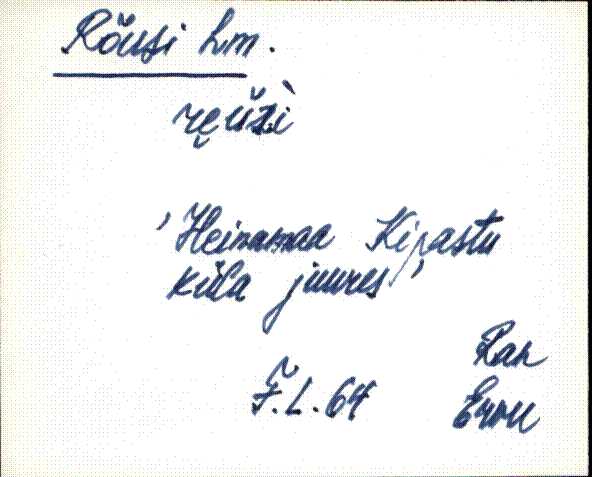 Rõusi hm.
rẹ̮ŭsì
'Heinamaa Kipastu
küla juures'
Ran
F.L. 64 Ervu